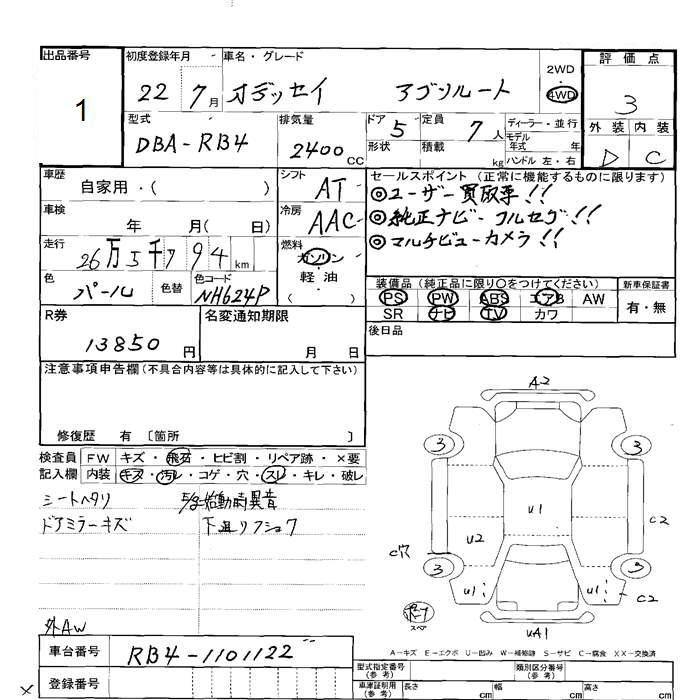 出品番号 初度登録年月 車名・グレード 評価点
1 22 7月 オデッセイ アブソルート 2WD 4WD 3
型式 排気量 ドア 5 定員 7人 ディーラー・並行 外装 内装
DBA-RB4 2400cc 形状 積載 kg モデル年式 年 ハンドル 左・右 D C
車歴 自家用・( ) シフト AT セールスポイント(正常に機能するものに限ります)
◎ユーザー買取車!!
車検 年 月( 日) 冷房 AAC ◎純正ナビ-フルセグ!!
◎マルチビューカメラ!!
走行 26万5千794km 燃料 ガソリン
軽油
( )
色 パール 色替 色コード NH624P 装備品(純正品に限り○をつけてください) 新車保証書
PS PW ABS エアB AW 有・無
SR ナビ TV カワ
R券 名変通知期限 後日品
13850円 月 日
注意事項申告欄(不具合内容等は具体的に記入して下さい)
修復歴 有 〔箇所 〕
検査員 FW キズ・飛石・ヒビ割・リペア跡・×要
記入欄 内装 キズ・汚レ・コゲ・穴・スレ・キレ・破レ
シートヘタリ 始動時異音
ドアミラーキズ 下廻リフショク
外AW
A2
3 3
U1
U2 C2
C穴
3 3
U1 U1 C2
スペ UA1
A-キズ E-エクボ U-凹み W-補修跡 S-サビ C-腐食 XX-交換済
車台番号 RB4-1101122
登録番号
型式指定番号(参考) 類別区分番号(参考)
車庫証明用(参考) 長さ cm 幅 cm 高さ cm
×